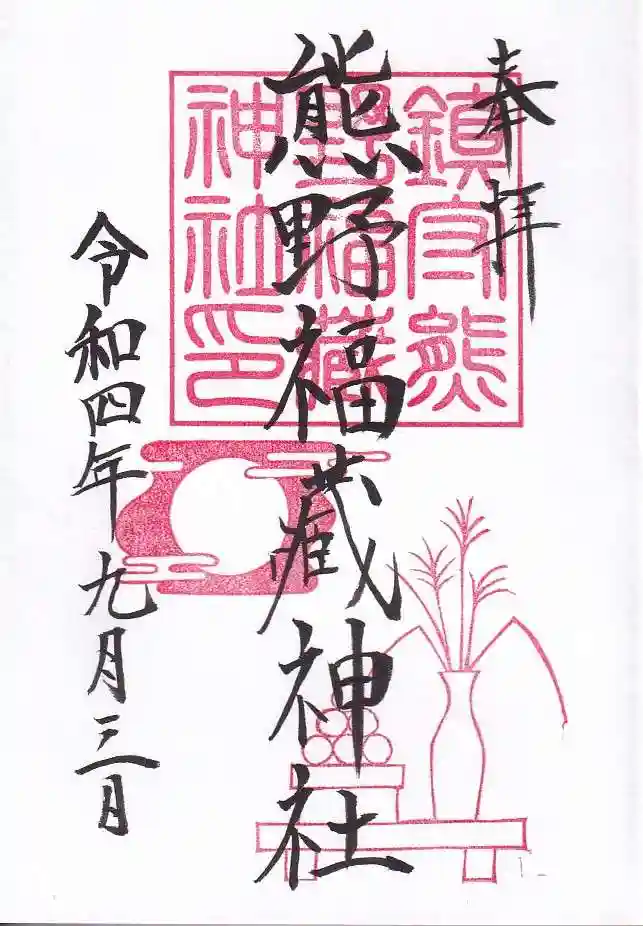 奉拝
熊野福蔵神社
令和四年九月三日
鎮守熊
野福蔵
神社印